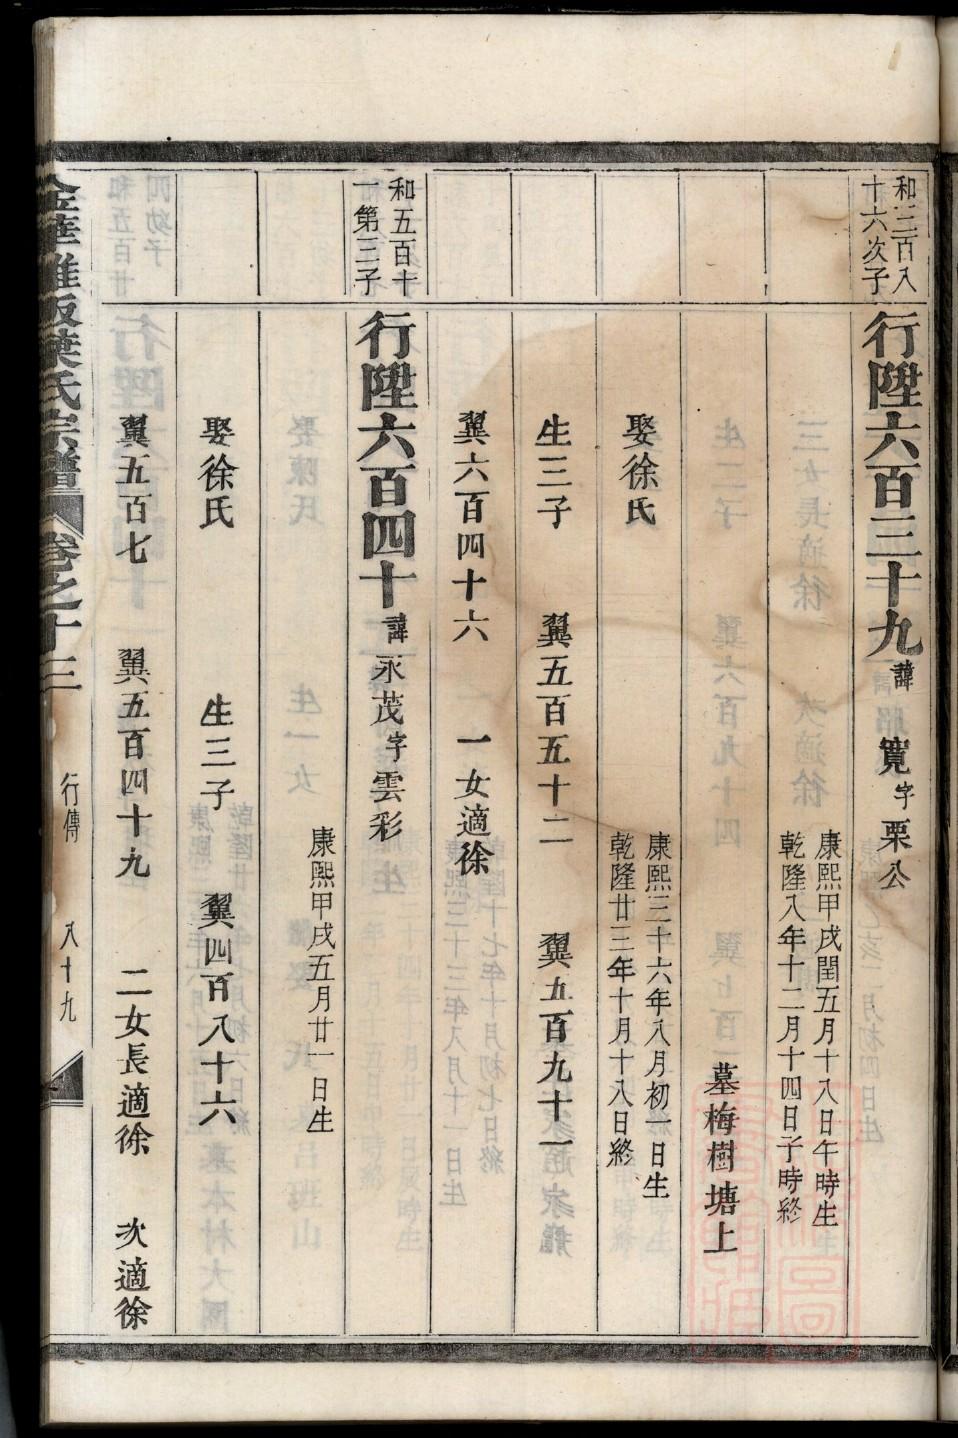 和三百八
十六次子
行陞六百三十九諱寬字栗公
康熙甲戌閏五月十八日午時生
乾隆八年十二月十四日子時終
墓梅樹塘上
娶徐氏
康熙三十六年八月初一日生
乾隆廿三年十月十八日終
生三子 翼五百五十二 翼五百九十一
翼六百四十六 一女適徐
和五百十
一第三子
行陞六百四十諱永茂字雲彩
康熙甲戌五月廿一日生
娶徐氏 生三子 翼四百八十六
翼五百七 翼五百四十九 二女長適徐 次適徐
金華雅畈葉氏宗譜 卷之十三 行傳 八十九